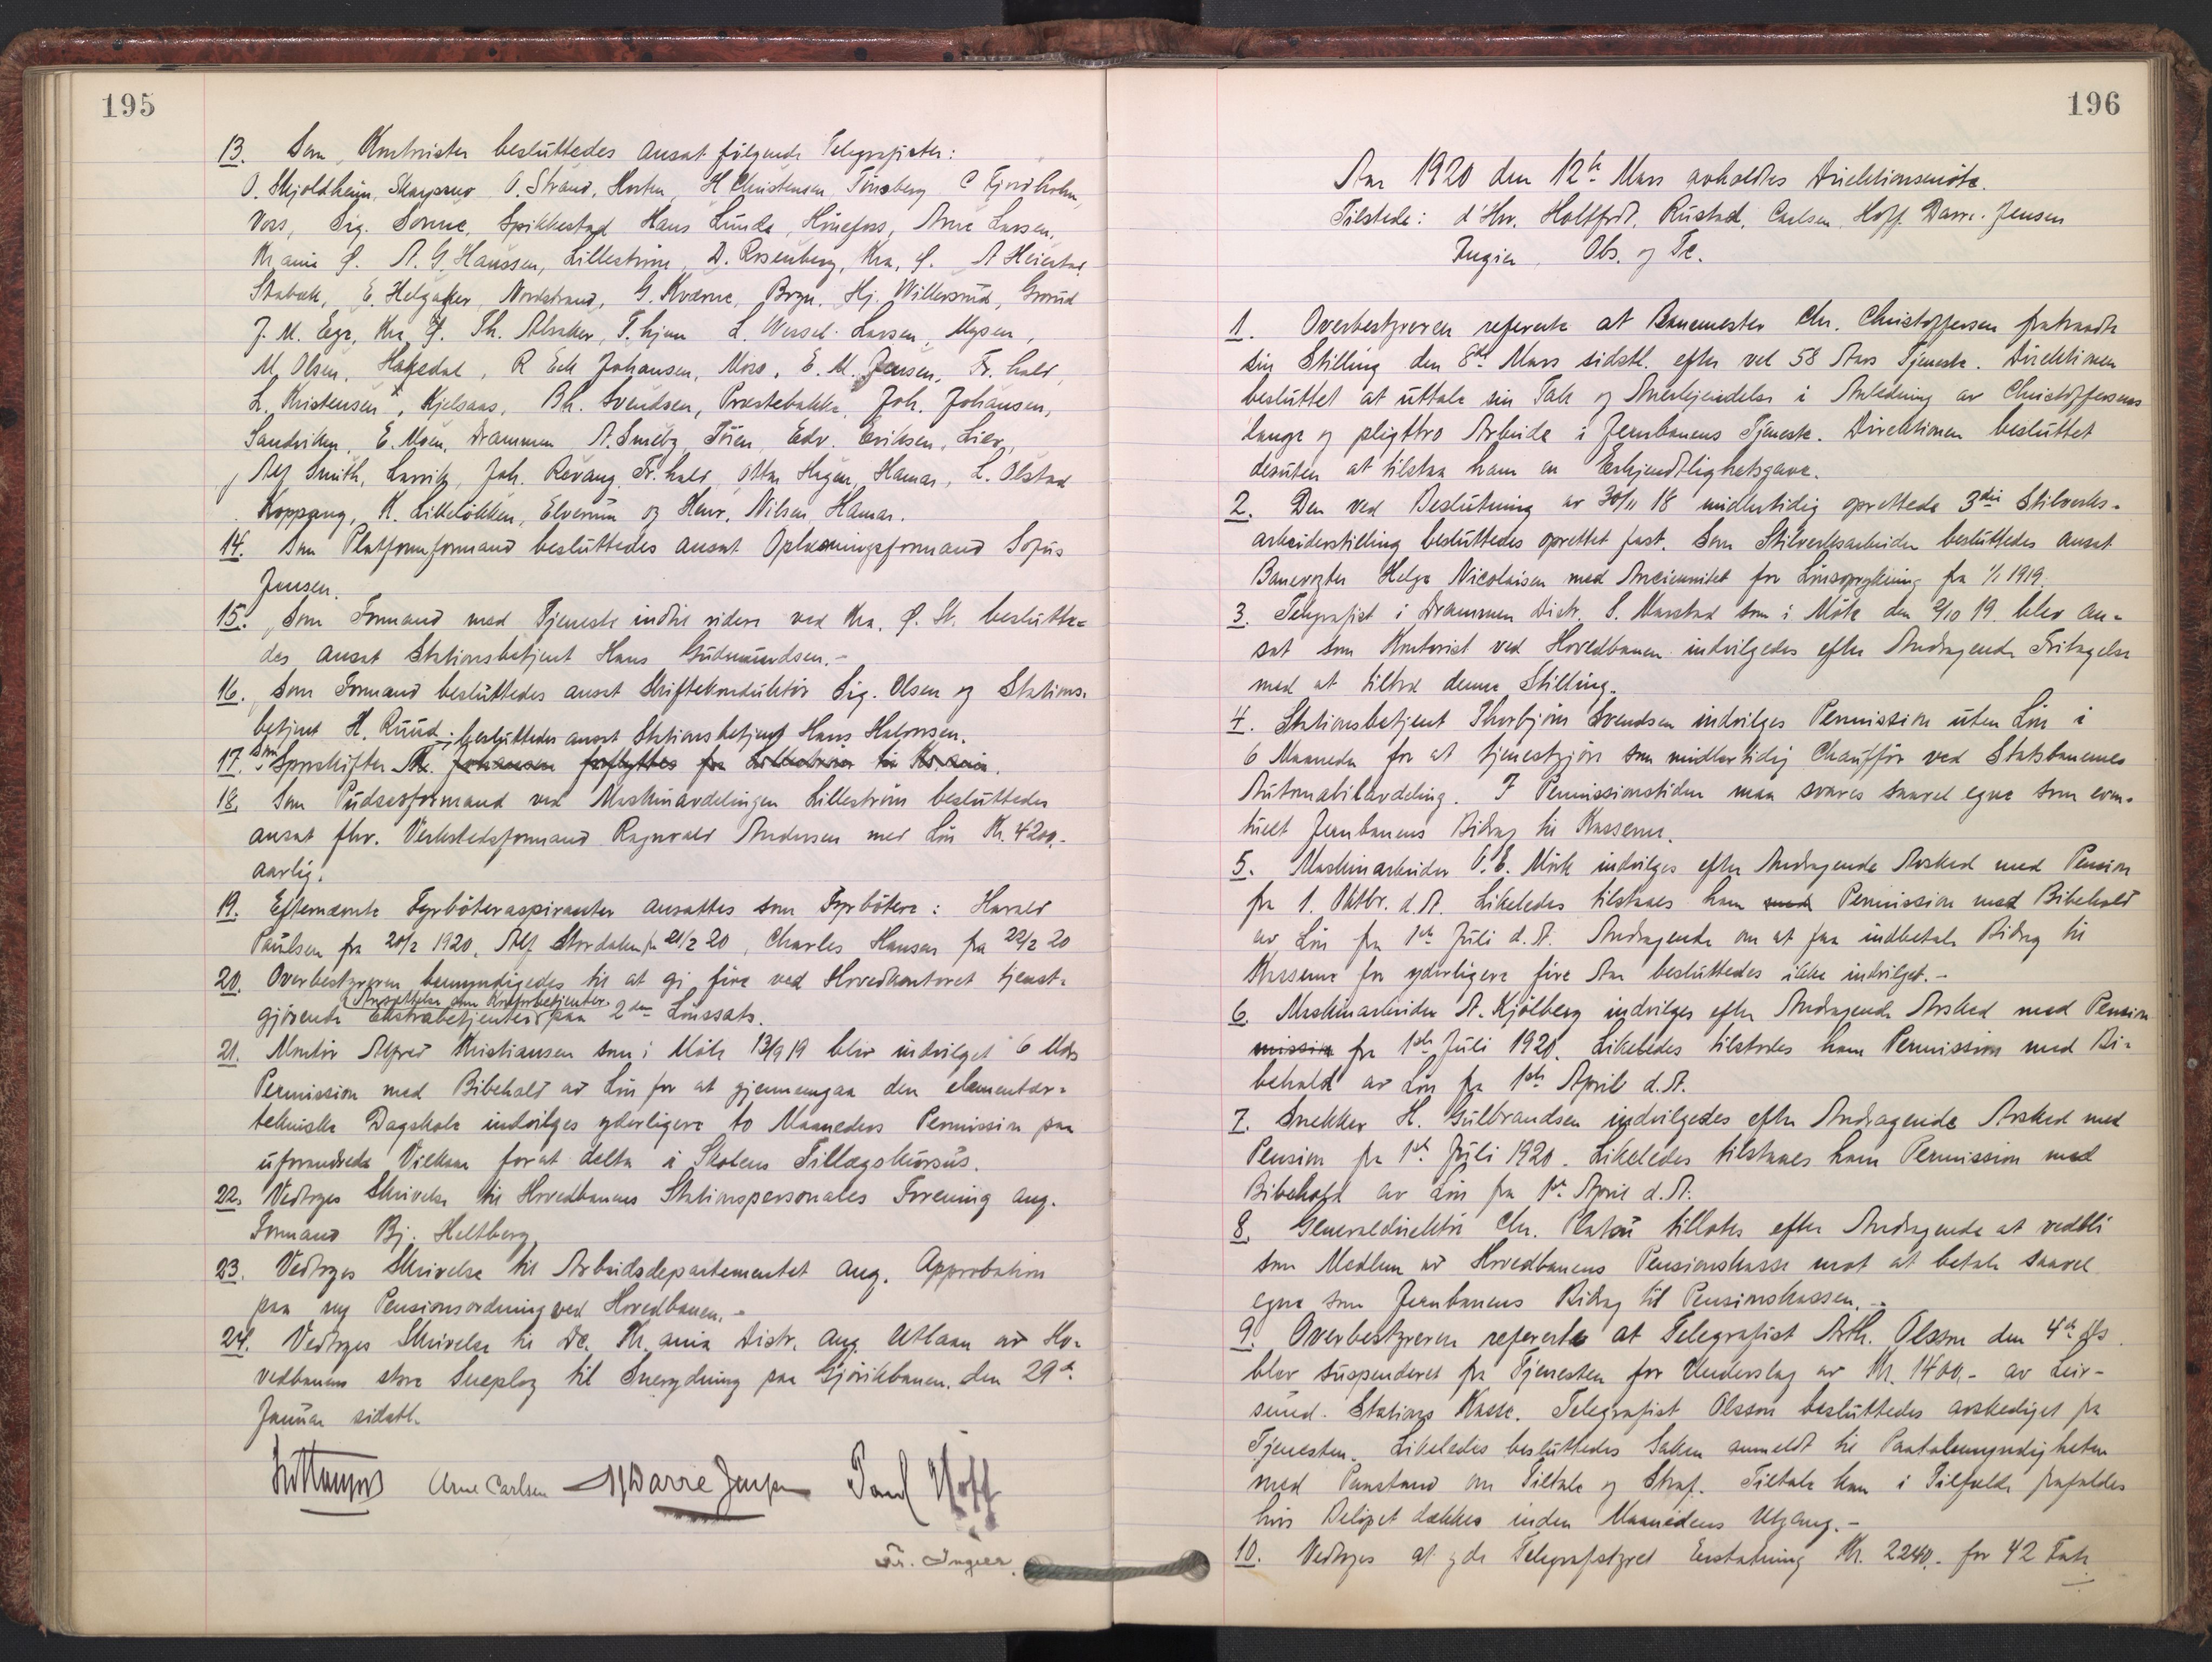 195
13. Som Kontorister besluttedes ansat følgende Telegrafister:
O. Skjoldheim, Skarpsno O. Strand, Horten, H Christensen Tønsberg C Fjordholm,
Voss, Sig. Sonne, Spikkestad Hans Lunde, Hønefoss, Arne Larsen,
Kr.ania Ø. A. G. Hanssen, Lillestrøm, D. Rosenberg, Kra, Ø. A Heiestad
Stabæk, E. Helgaker Nordstrand, G. Kværne, Bryn. Hj. Willersrud, Grorud
J. M. Ege, Kra Ø. Th. Alsaker, T.hjem L. Wessel-Larsen, Mysen,
M. Olsen, Hakedal, R Eek Johansen, Moss, E. M. Jensen, Fr.hald,
L. Kristensen, Kjelsaas, Bh. Svendsen, Præstebakke, Joh. Johansen,
Sandviken, E. Moen, Drammen A. Smeby, Tøien, Edv. Eriksen, Lier,
Alf Smith, Larvik, Joh. Revaug Fr.hald, Ottar Hagen, Hamar, L. Olstad
Koppang, K. Lilleløkken, Elverum og Henr. Nilsen Hamar.
14. Som Platformformand besluttedes ansat Oplæsningsformand Sofus
Jensen.
15. Som Formand med Tjeneste indtil videre ved Kra. Ø. St. beslutte-
des ansat Stationsbetjent Hans Gudmundsen.-
16. Som Formand besluttedes ansat Skiftekonduktør Sig. Olsen og Stations-
betjent H. Ruud.
17. Som Sporskifter besluttedes ansat Stationsbetjent Hans Halvorsen.
Th. Johansen forflyttes fra Lillestrøm til Kr.ania.
18. Som Pudserformand ved Maskinavdelingen Lillestrøm besluttedes
ansat fhv. Verkstedsformand Ragnvald Andersen med Løn Kr. 4200,-
aarlig.
19. Efternævnte Fyrbøteraspiranter ansattes som Fyrbøtere: Harald
Paulsen fra 20/2 1920, Alf Stordalen fra 21/2 20, Charles Hansen fra 22/2 20
20. Overbestyreren bemyndigedes til at gi fire ved Hovedkontoret tjenst-
Ansættelse som Kontorbetjenter
gjørende Ekstrabetjenter paa 2den Lønssats.
21. Montør Alfred Kristiansen som i Møte 13/9 19 blev indvilget 6 Mdrs
Permission med Bibehold av Løn for at gjennemgaa den elementær-
tekniske Dagskole indvilges yderligere to Maaneders Permission paa
uforandrede Vilkaar forat delta i Skolens Tillægskursus.
22. Vedtoges Skrivelse til Hovedbanens Stationspersonales Forening ang.
Formand Bj. Heltberg.
23. Vedtoges Skrivelse til Arbeidsdepartementet ang. Approbation
paa ny Pensionsordning ved Hovedbanen.-
24. Vedtoges Skrivelse til Dc. Kr.ania Distr. ang. Utlaan av Ho-
vedbanens store Sneplog til Snerydning paa Gjøvikbanen den 29de
Januar sidstl.
Arne Carlsen Darre Jensen Paul Hoff
Fr. Ingier.
196
Aar 1920 den 12te Mars avholdtes Direktionsmøte.
Tilstede: d'Hrr. Holtfodt, Rustad, Carlsen, Hoff, Darre-Jensen
Ingier, Obs. og Tc.
1. Overbestyreren refererte at Banemester Chr. Christoffersen fratraadte
sin Stilling den 8de Mars sidstl. efter vel 58 Aars Tjeneste. Direktionen
besluttet at uttale sin Tak og Anerkjendelse i Anledning av Christoffersens
lange og pligttro Arbeide i Jernbanens Tjeneste. Direktionen besluttet
desuten at tilstaa ham en Erkjendtlighetsgave.
2. Den ved Beslutning av 30/11 18 midlertidig oprettede 3die Stilverks-
arbeiderstilling besluttedes oprettet fast. Som Stilverksarbeider besluttedes ansat
Banevogter Helge Nicolaisen med Anciennitet for Lønsoprykning fra 1/1 1919.
3. Telegrafist i Drammen Distr. S. Marstad som i Møte den 2/10 19. blev an-
sat som Kontorist ved Hovedbanen indvilgedes efter Andragende Fritagelse
med at tiltræ denne Stilling.
4. Stationsbetjent Thorbjørn Svendsen indvilges Permission uten Løn i
6 Maaneder for at tjenestgjøre som midlertidig Chauffør ved Statsbanernes
Automobilavdeling. I Permissionstiden maa svares saavel egne som even-
tuelt Jernbanens Bidrag til Kasserne.
5. Maskinarbeider O. E. Mørk indvilges efter Andragende Avsked med Pension
fra 1. Oktbr. d.A. Likeledes tilstaaes ham med Permission med Bibehold
av Løn fra 1ste Juli d.A. Andragende om at faa indbetale Bidrag til
Kasserne for yderligere fire Aar besluttedes ikke indvilget.-
6. Maskinarbeider A. Kjølberg indvilges efter Andragende Avsked med Pension
mission fra 1ste Juli 1920. Likeledes tilstodes ham Permission med Bi-
behold av Løn fra 1ste April d.A.
7. Snekker H. Gulbrandsen indvilgedes efter Andragende Avsked med
Pension fra 1ste Juli 1920. Likeledes tilstaaes ham Permission med
Bibehold av Løn fra 1ste April d.A.
8. Generaldirektør Chr. Platou tillates efter Andragende at vedbli
som Medlem av Hovedbanens Pensionskasse mot at betale saavel
egne som Jernbanens Bidrag til Pensionskassen.-
9. Overbestyreren refererte at Telegrafist Arth. Olsson den 4de ds.
blev suspenderet fra Tjenesten for Underslag av Kr. 1400,- av Leir-
sund Stations Kasse. Telegrafist Olsson besluttedes avskediget fra
Tjenesten. Likeledes besluttedes Saken anmeldt til Paatalemyndigheten
med Paastand om Tiltale og Straf. Tiltale kan i Tilfælde frafaldes
hvis Beløpet dækkes inden Maanedens Utgang.-
10. Vedtoges at yde Telegrafstyret Erstatning Kr. 2240,- for 42